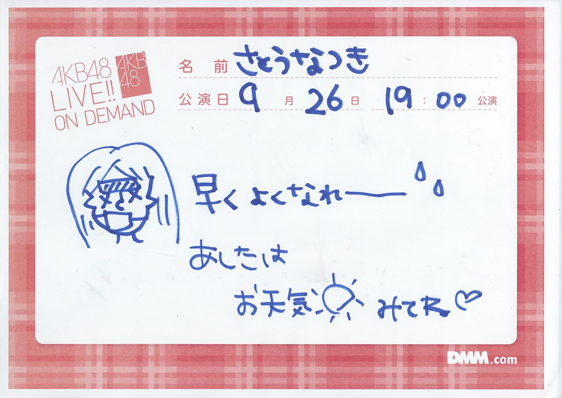 AKB48
LIVE!!
ON DEMAND
AKB
48
名前 さとうなつき
公演日 9月26日 19:00公演
早くよくなれー
あしたは
お天気みてね♡
DMM.com